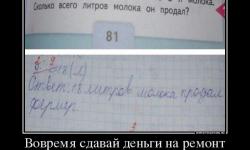 молока.
Сколько всего литров молока он продал?
81
(л)
Ответ: 18 литров молока продал
фермер.
Вовремя сдавай деньги на ремонт